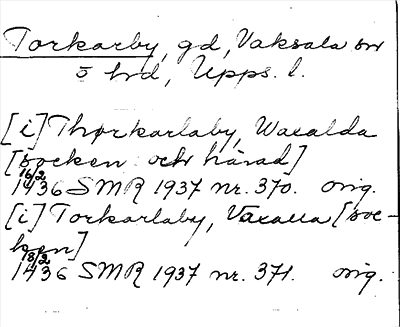 Torkarby, gd, Vaksala sn
5 hrd, Upps. l.
[i] Thørkarlaby, Waxalda
[socken och härad]
16/2 1436 SMR 1937 nr. 370. orig.
[i] Torkarlaby, Vaxalla [soc-
ken]
18/2 1436 SMR 1937 nr. 371. orig.